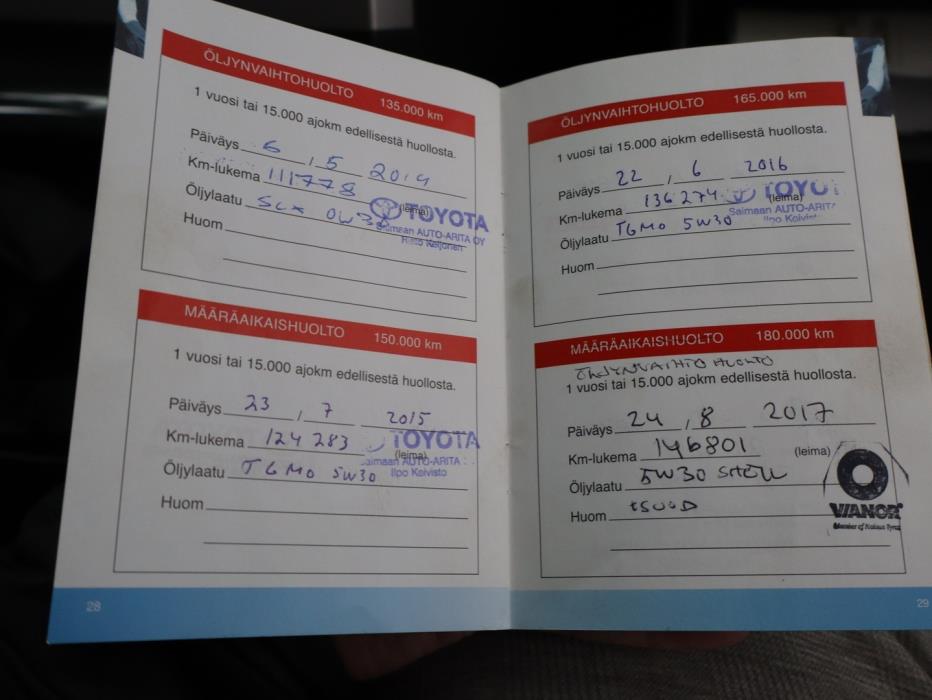 ÖLJYNVAIHTOHUOLTO 135.000 km
1 vuosi tai 15.000 ajokm edellisestä huollosta.
Päiväys 6 , 5 2014
Km-lukema 111778 (leima)
TOYOTA
Öljylaatu 0W30
Saimaan AUTO-ARITA OY
Huom
MÄÄRÄAIKAISHUOLTO 150.000 km
1 vuosi tai 15.000 ajokm edellisestä huollosta.
Päiväys 23 , 7 2015
Km-lukema 124 283 (leima)
TOYOTA
Saimaan AUTO-ARITA
Öljylaatu TGMO 5W30
Ilpo Koivisto
Huom
28
ÖLJYNVAIHTOHUOLTO 165.000 km
1 vuosi tai 15.000 ajokm edellisestä huollosta.
Päiväys 22 , 6 2016
Km-lukema 136 274 (leima)
TOYO
Saimaan AUTO-ARITA
Öljylaatu TGMO 5W30
Ilpo Koivist
Huom
MÄÄRÄAIKAISHUOLTO 180.000 km
ÖLJYNVAIHTO HUOLTO
1 vuosi tai 15.000 ajokm edellisestä huollosta.
Päiväys 24 , 8 2017
Km-lukema 146801 (leima)
Öljylaatu 5W30 SHELL
Huom
VIANOR
Member of Nokian Tyres
29